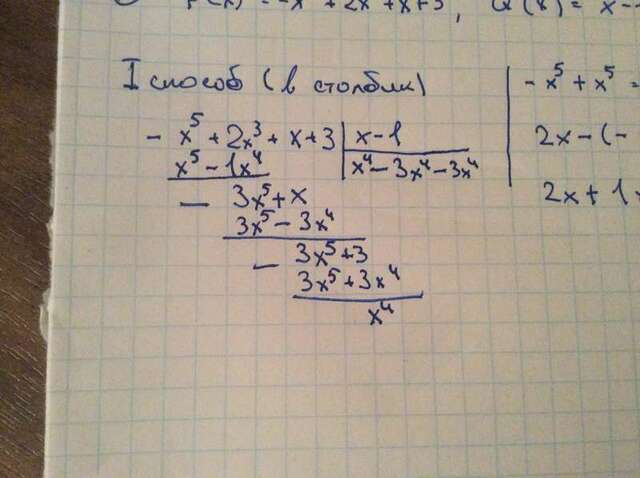 P(x) = -x⁵ + 2x³ + x + 3, Q(x) = x -
I способ (в столбик)
- x⁵ + 2x³ + x + 3 | x - 1
x⁵ - 1x⁴ | x⁴ - 3x⁴ - 3x⁴
- 3x⁵ + x
3x⁵ - 3x⁴
- 3x⁵ + 3
3x⁵ + 3x⁴
x⁴
- x⁵ + x⁵ =
2x - (-
2x + 1